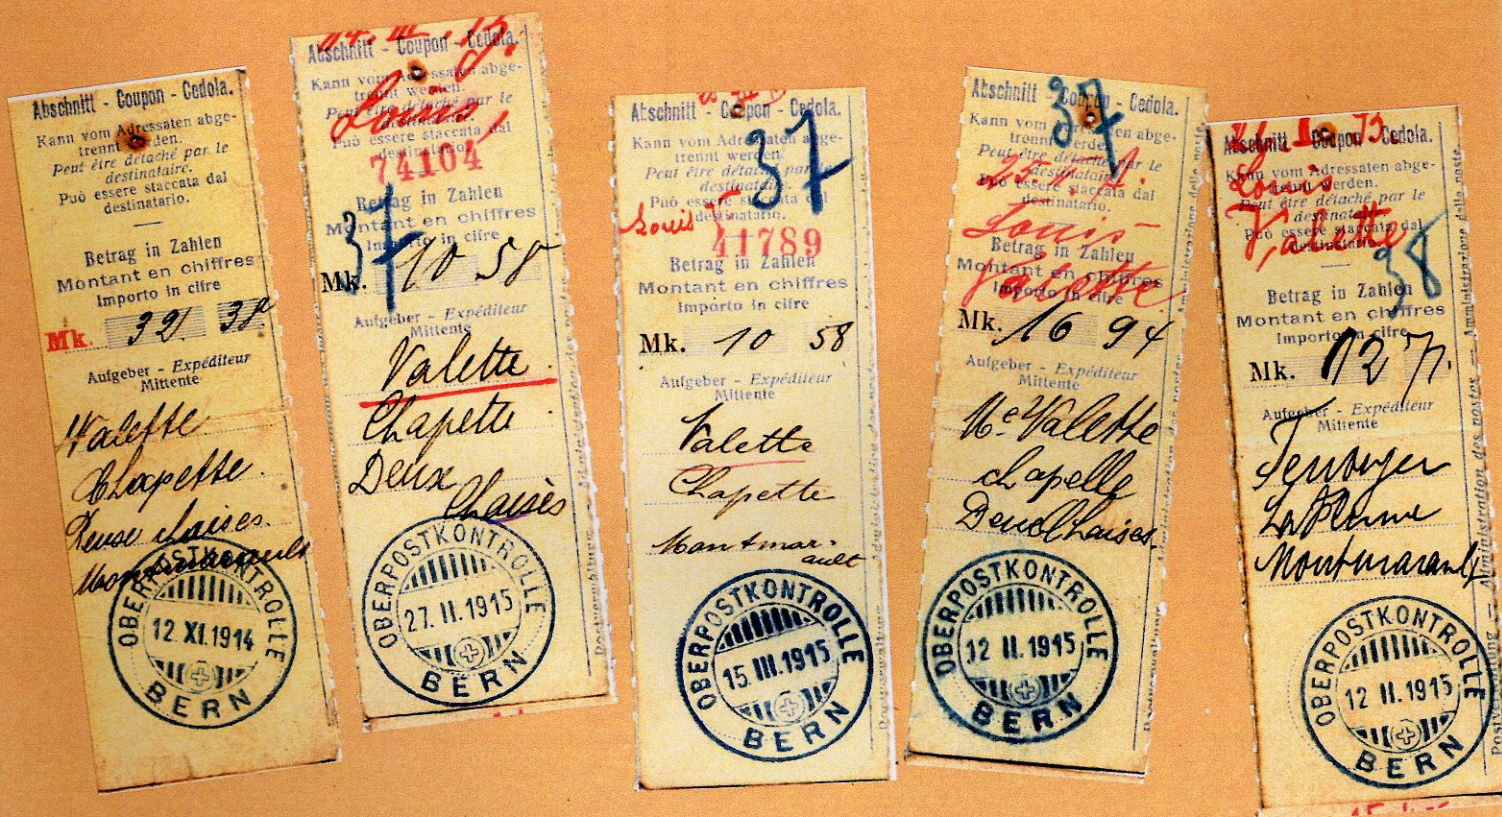 Abschnitt - Coupon - Cedola.
Kann vom Adressaten abge-
trennt werden.
Peut être détaché par le
destinataire.
Può essere staccata dal
destinatario.
Betrag in Zahlen
Montant en chiffres
Importo in cifre
Mk. 32
Aufgeber - Expéditeur
Mittente
Valette
Chapette
Deux chaises
Montmarault
OBERPOSTKONTROLLE
12. XI. 1914
BERN
Abschnitt - Coupon - Cedola.
Kann vom Adressaten abge-
trennt werden.
Peut être détaché par le
destinataire.
Può essere staccata dal
destinatario.
Louis
74104
37
Betrag in Zahlen
Montant en chiffres
Importo in cifre
Mk. 10 58
Aufgeber - Expéditeur
Mittente
Valette
Chapette
Deux
Chaises
OBERPOSTKONTROLLE
27. II. 1915
BERN
Abschnitt - Coupon - Cedola.
37
Kann vom Adressaten abge-
trennt werden.
Peut être détaché par le
destinataire.
Può essere staccata dal
destinatario.
Louis V
41789
Betrag in Zahlen
Montant en chiffres
Importo in cifre
Mk. 10 58
Aufgeber - Expéditeur
Mittente
Valette
Chapette
Montmar-
ault
OBERPOSTKONTROLLE
15. III. 1915
BERN
Abschnitt - Coupon - Cedola.
37
Kann vom Adressaten abge-
trennt werden.
Peut être détaché par le
destinataire.
Può essere staccata dal
destinatario.
Louis
Valette
Betrag in Zahlen
Montant en chiffres
Importo in cifre
Mk. 16 94
Aufgeber - Expéditeur
Mittente
Me Valette
chapelle
Deux Chaises
OBERPOSTKONTROLLE
12 II. 1915
BERN
Amministrazione delle poste
Abschnitt - Coupon - Cedola.
Kann vom Adressaten abge-
trennt werden.
Peut être détaché par le
destinataire.
Può essere staccata dal
destinatario.
Louis
Valette
38
Betrag in Zahlen
Montant en chiffres
Importo in cifre
Mk. 12 71
Aufgeber - Expéditeur
Mittente
Montmarault
OBERPOSTKONTROLLE
12 II. 1915
BERN
Postverwaltung - Administration des postes - Amministrazione delle poste